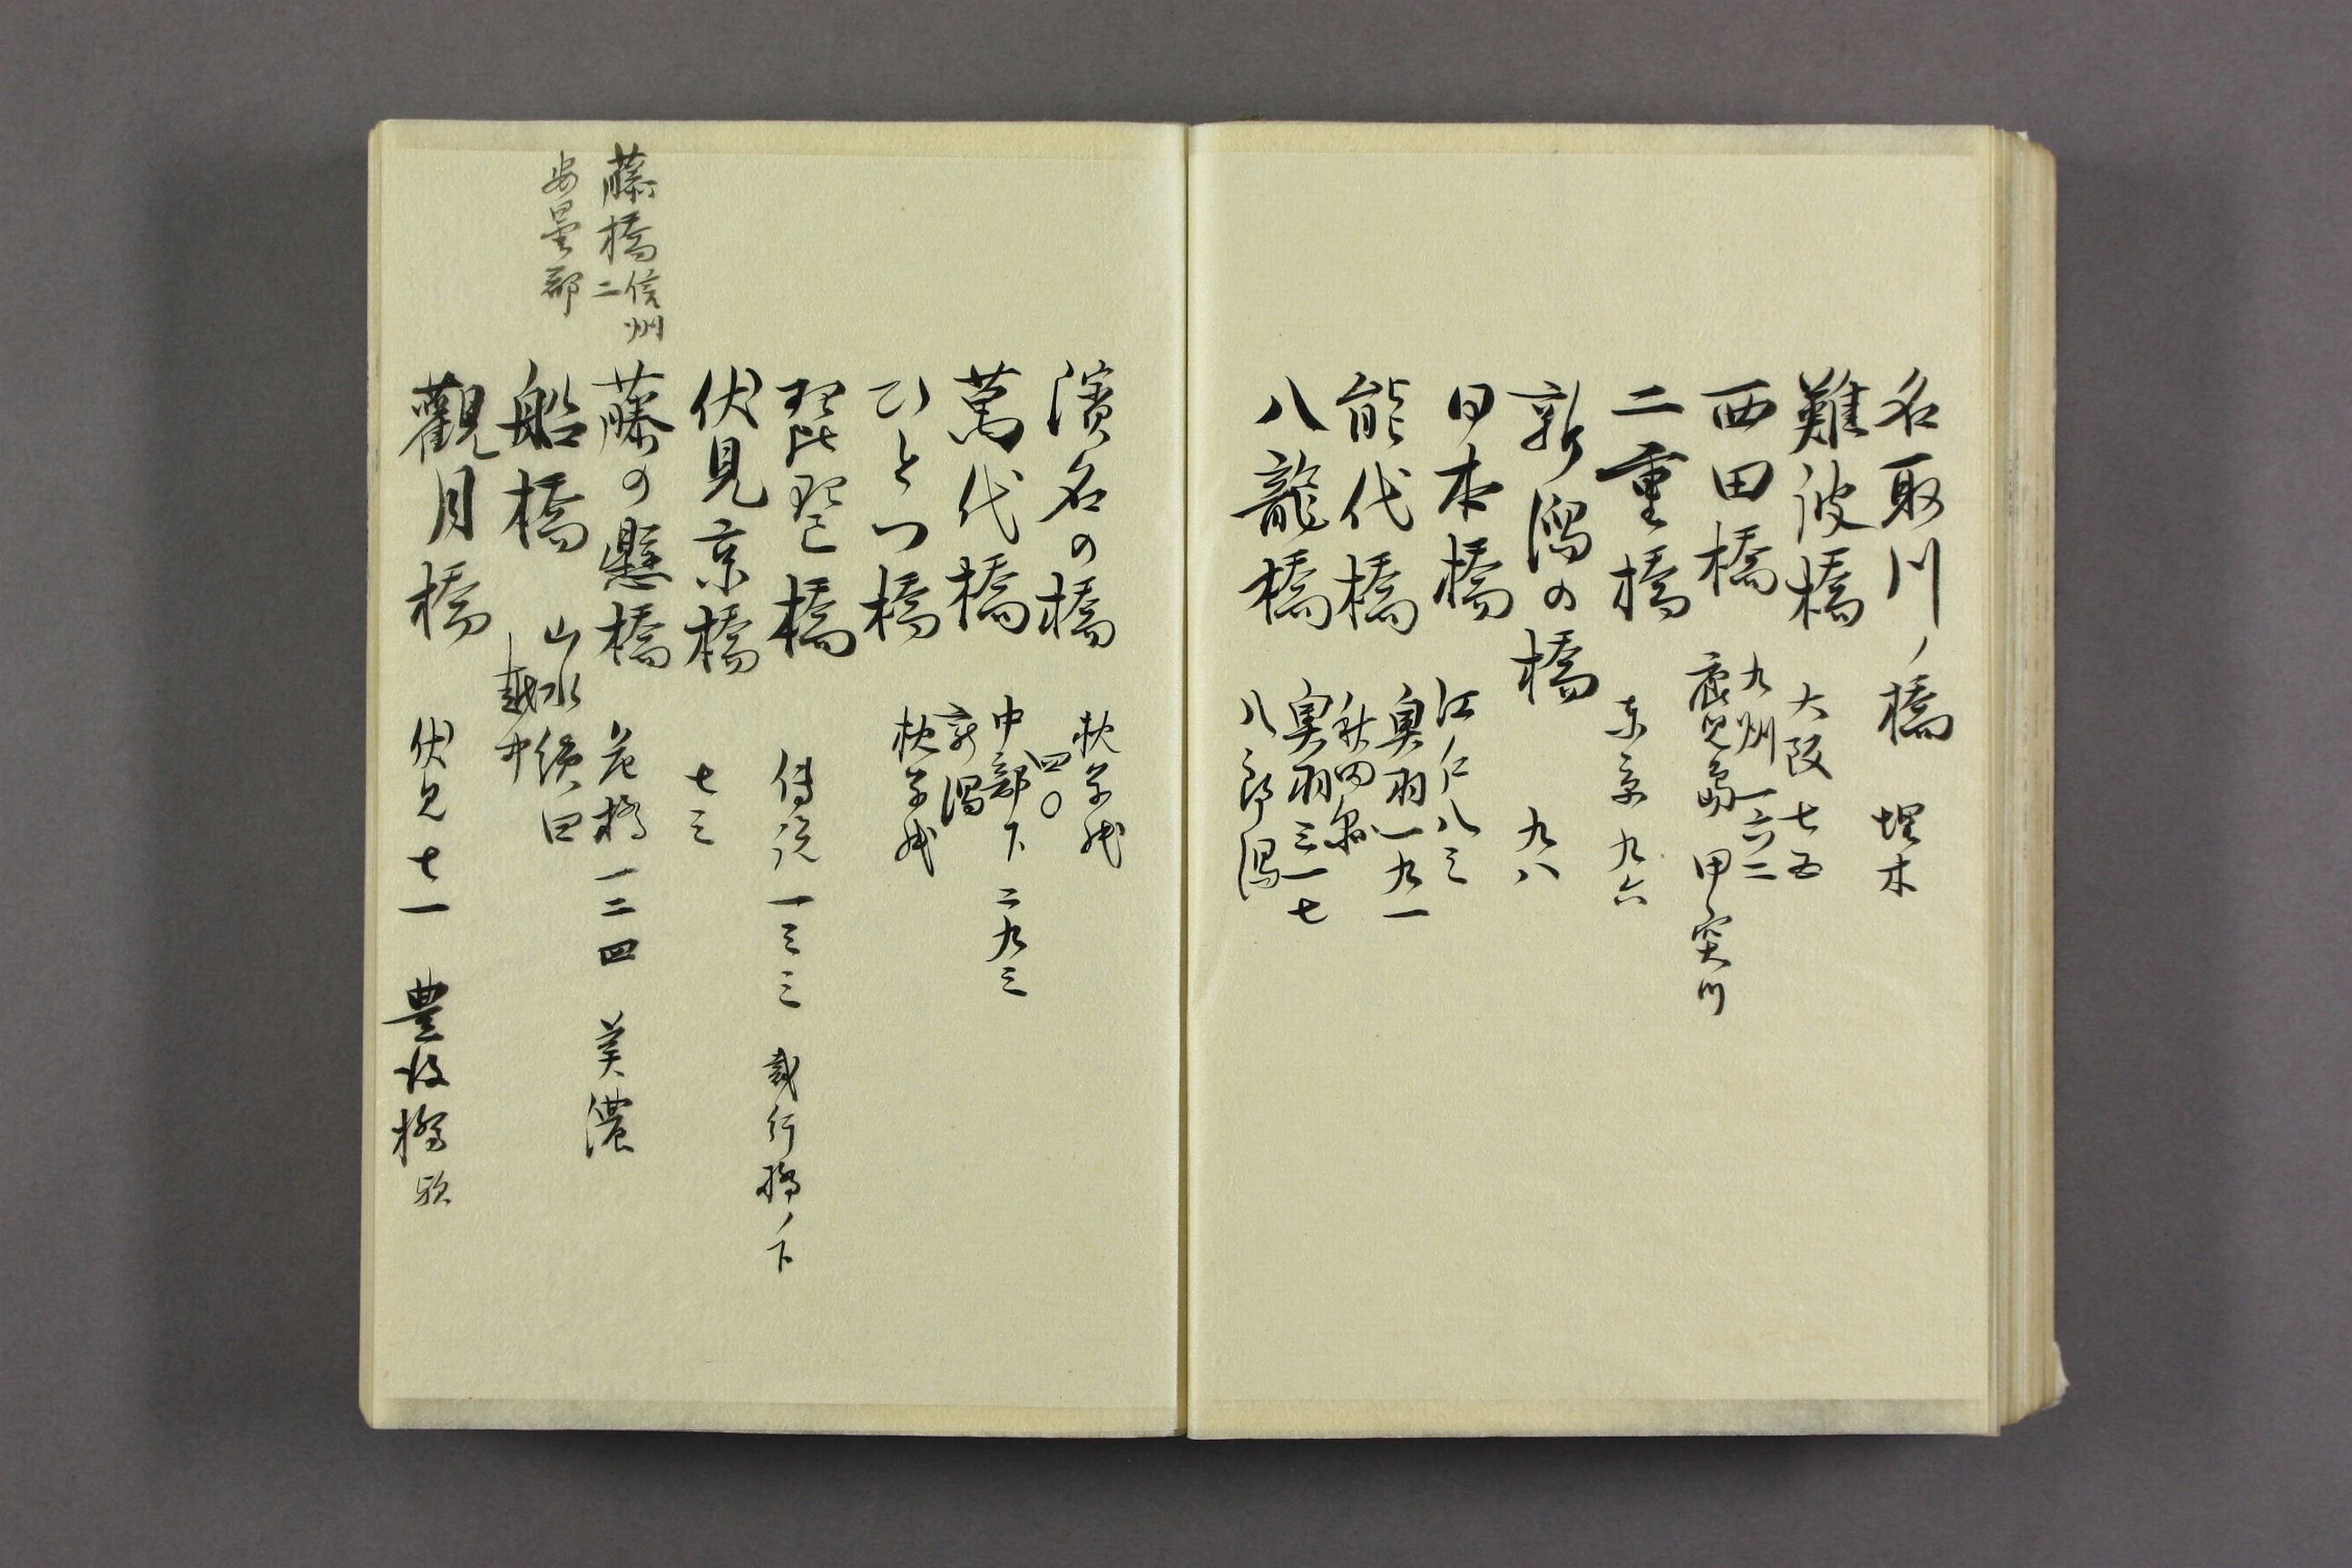 名取川ノ橋 埋木
難波橋 大阪七五
西田橋 九州一六二
鹿児島 甲突川
二重橋 東京九六
新潟の橋 九八
日本橋 江仁八三
能代橋 奥羽一九一
秋田縣
八龍橋 奥羽三一七
八郎潟
濱名の橋 枕草紙
四〇
萬代橋 中部下二九三
新潟
ひとつ橋 枕草紙
琵琶橋 傳説一三三 戴行橋ノ下
伏見京橋 七三
藤橋二信州
安曇郡
藤の懸橋 花橋一二四 美濃
船橋 山水 續曰
越中
觀月橋 伏見七一 豊後橋歟